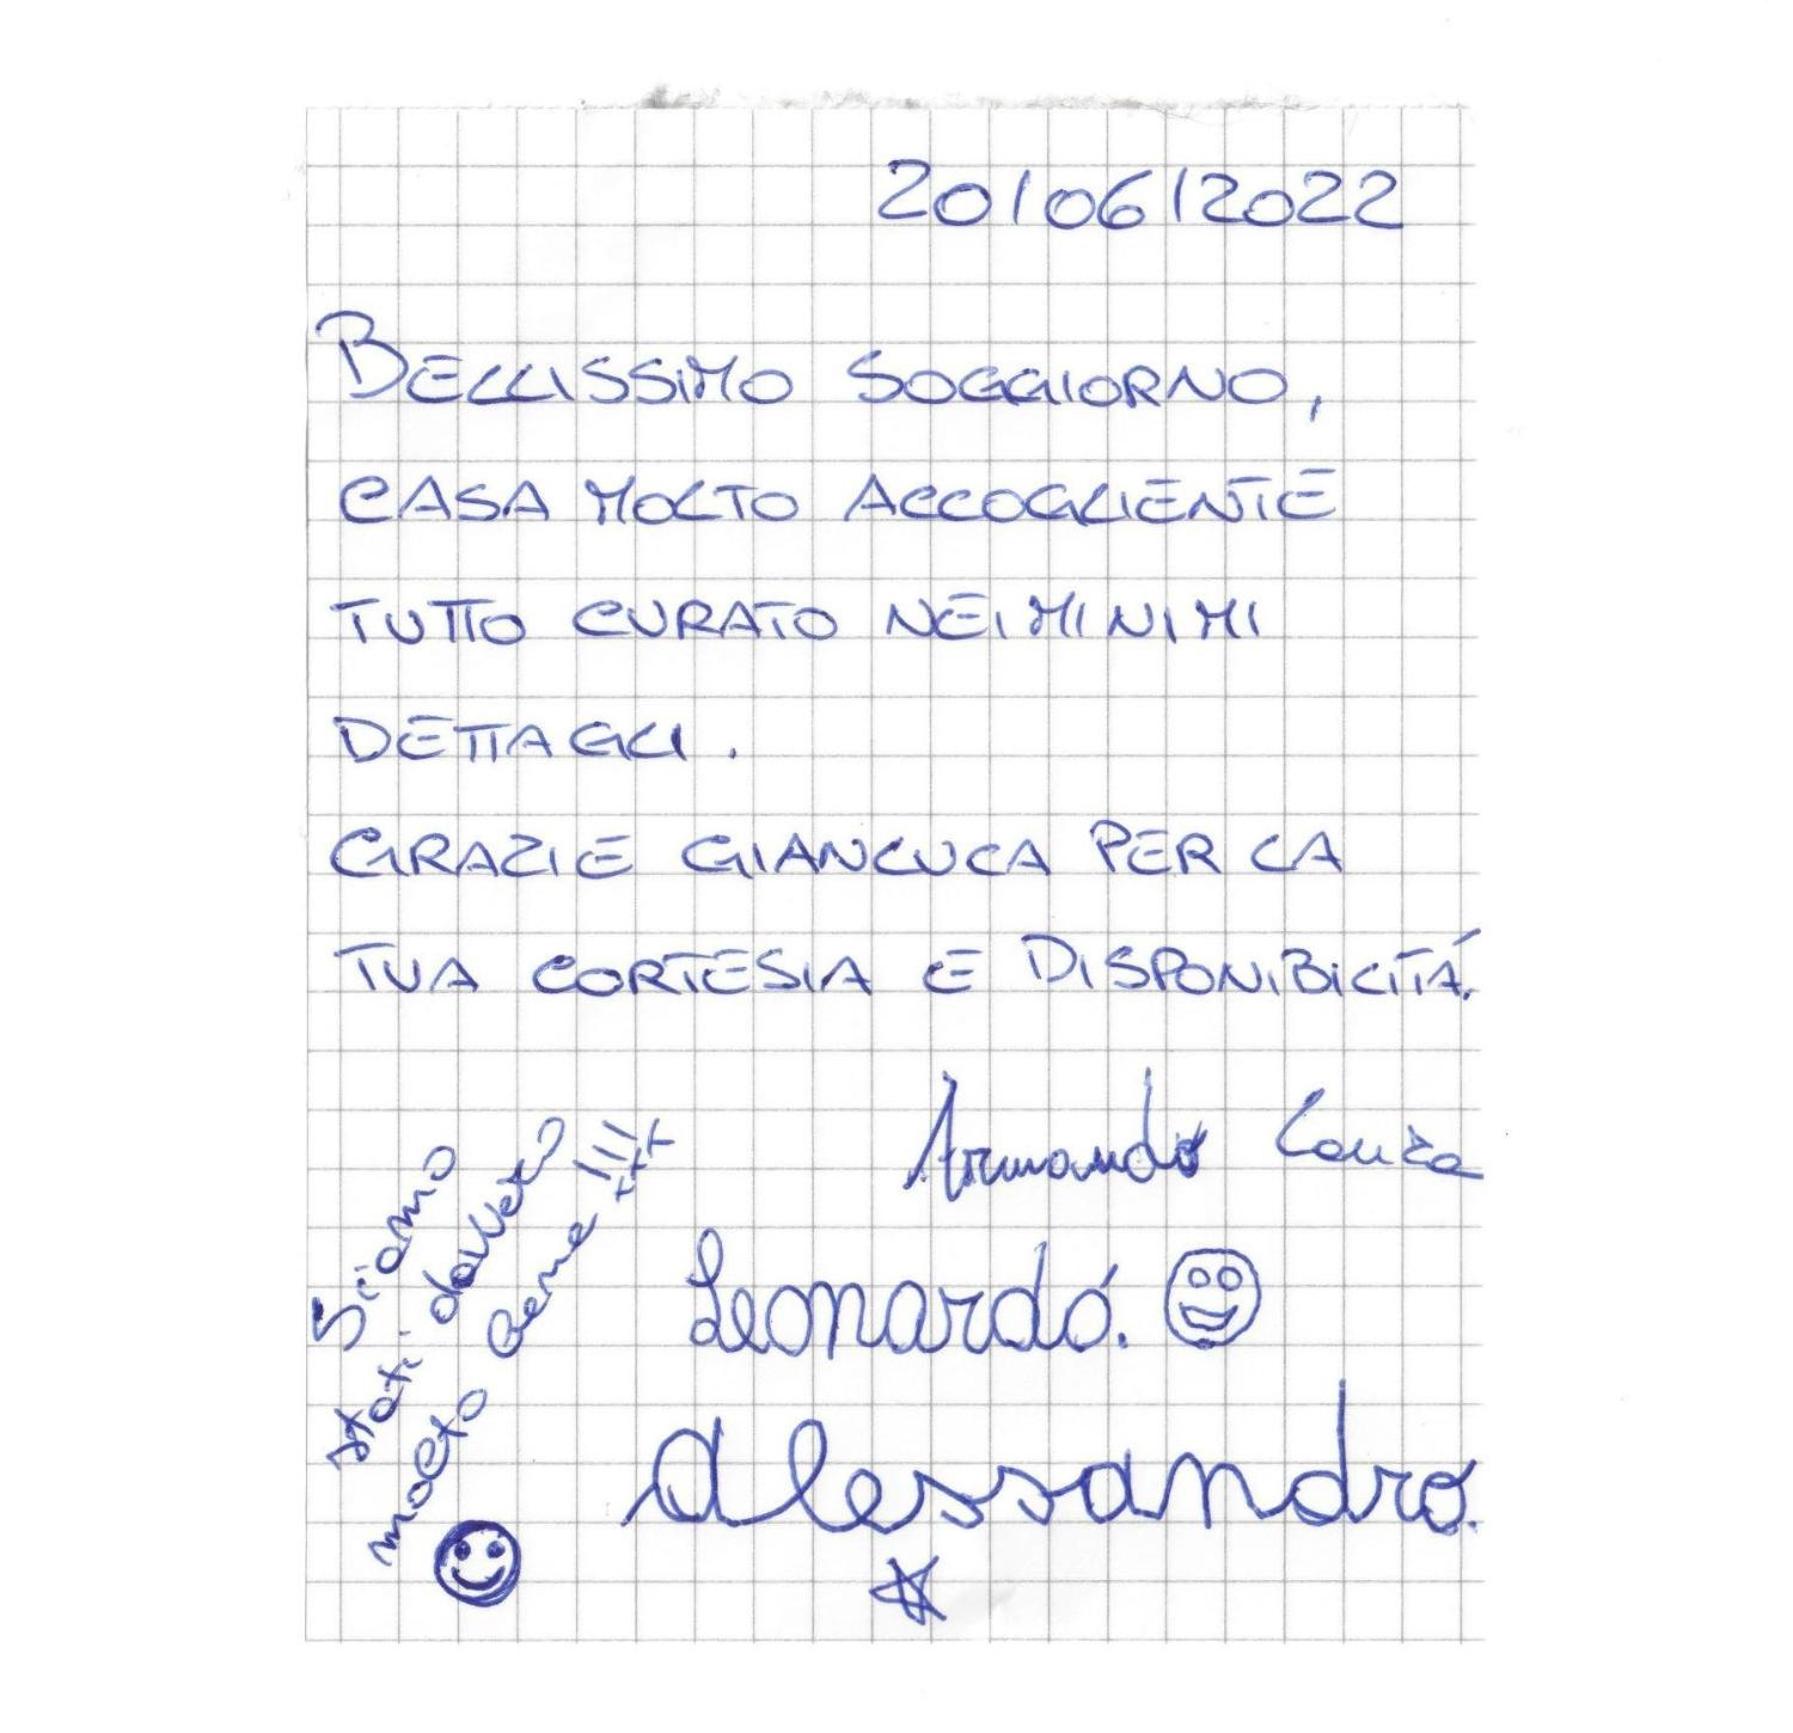 20/06/2022
BELLISSIMO SOGGIORNO,
CASA MOLTO ACCOGLIENTE
TUTTO CURATO NEI MINIMI
DETTAGLI.
GRAZIE GIANLUCA PER LA
TUA CORTESIA E DISPONIBILITÁ.
Armando Laura
Leonardo.
Alessandro.
Siamo
stati davvero
molto bene !!!